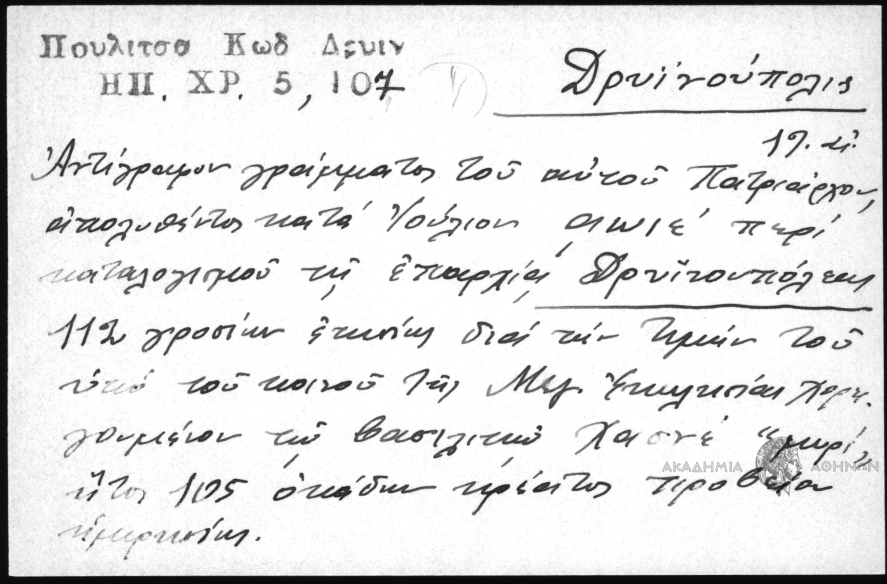 Πουλιτσα Κωδ Δρυιν
ΗΠ. ΧΡ. 5, 107
Δρυϊνούπολις
19. αἰ.
Ἀντίγραφον γράμματος τοῦ αὐτοῦ Πατριάρχου,
ἀπολυθέντος κατά Ἰούλιον αωιέ περί
καταλογισμοῦ τῇ ἐπαρχίᾳ Δρυϊνουπόλεως
112 γροσίων ἐτησίως διά τήν τιμήν τοῦ
ὑπό τοῦ κοινοῦ τῆς Μεγ. Ἐκκλησίας χορη-
γουμένου τῷ βασιλικῷ Χασνέ "μιρί"
ἤτοι 105 ὀκάδων κρέατος προβείου
ἡμερησίως.
ΑΚΑΔΗΜΙΑ ΑΘΗΝΩΝ